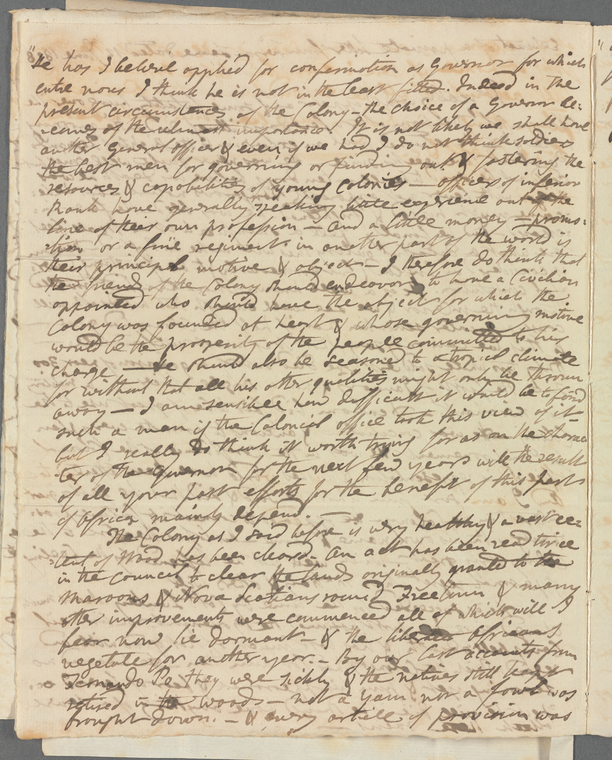 "He has I believe applied for confirmation as Governor for which
entre nous I think he is not in the least fitted. Indeed in the
present circumstances of the Colony - the choice of a Governor be-
comes of the utmost importance. It is not likely we shall have
another General officer & even if we had I do not think soldiers
the best men for governing or finding out & fostering the
resources & capabilities of young Colonies - officers of inferior
Rank have generally speaking little experience out of the
line of their own profession - and a little money - promo-
tion or a fine regiment in another part of the world is
their principal motive & object - I therefore do think that
the friends of the Colony should endeavour to have a Civilian
appointed who should have the object for which the
Colony was founded at heart & whose governing motive
would be the prosperity of the people committed to his
charge - He should also be seasoned to a tropical climate
for without that all his other qualities might only be thrown
away - I am sensible how difficult it would be to find
such a man if the Colonial office took this view of it
but I really do think it worth trying for as on the charac
ter of the Governor for the next few years will the result
of all your past efforts for the benefit of this part
of Africa mainly depend. -
The Colony as I said before is very healthy & a vast ex-
tent of Wood has been cleared. An act has been read twice
in the Council to clear the lands originally granted to the
Maroons & Nova Scotians round Freetown & many
other improvements were commenced all of which will I
fear now lie dormant - & the liberated Africans
vegetate for another year. - By our last accounts from
Fernando Po they were sickly & the natives still kept
retired in the woods - not a yam nor a fowl was
brought down. - & every article of provision was